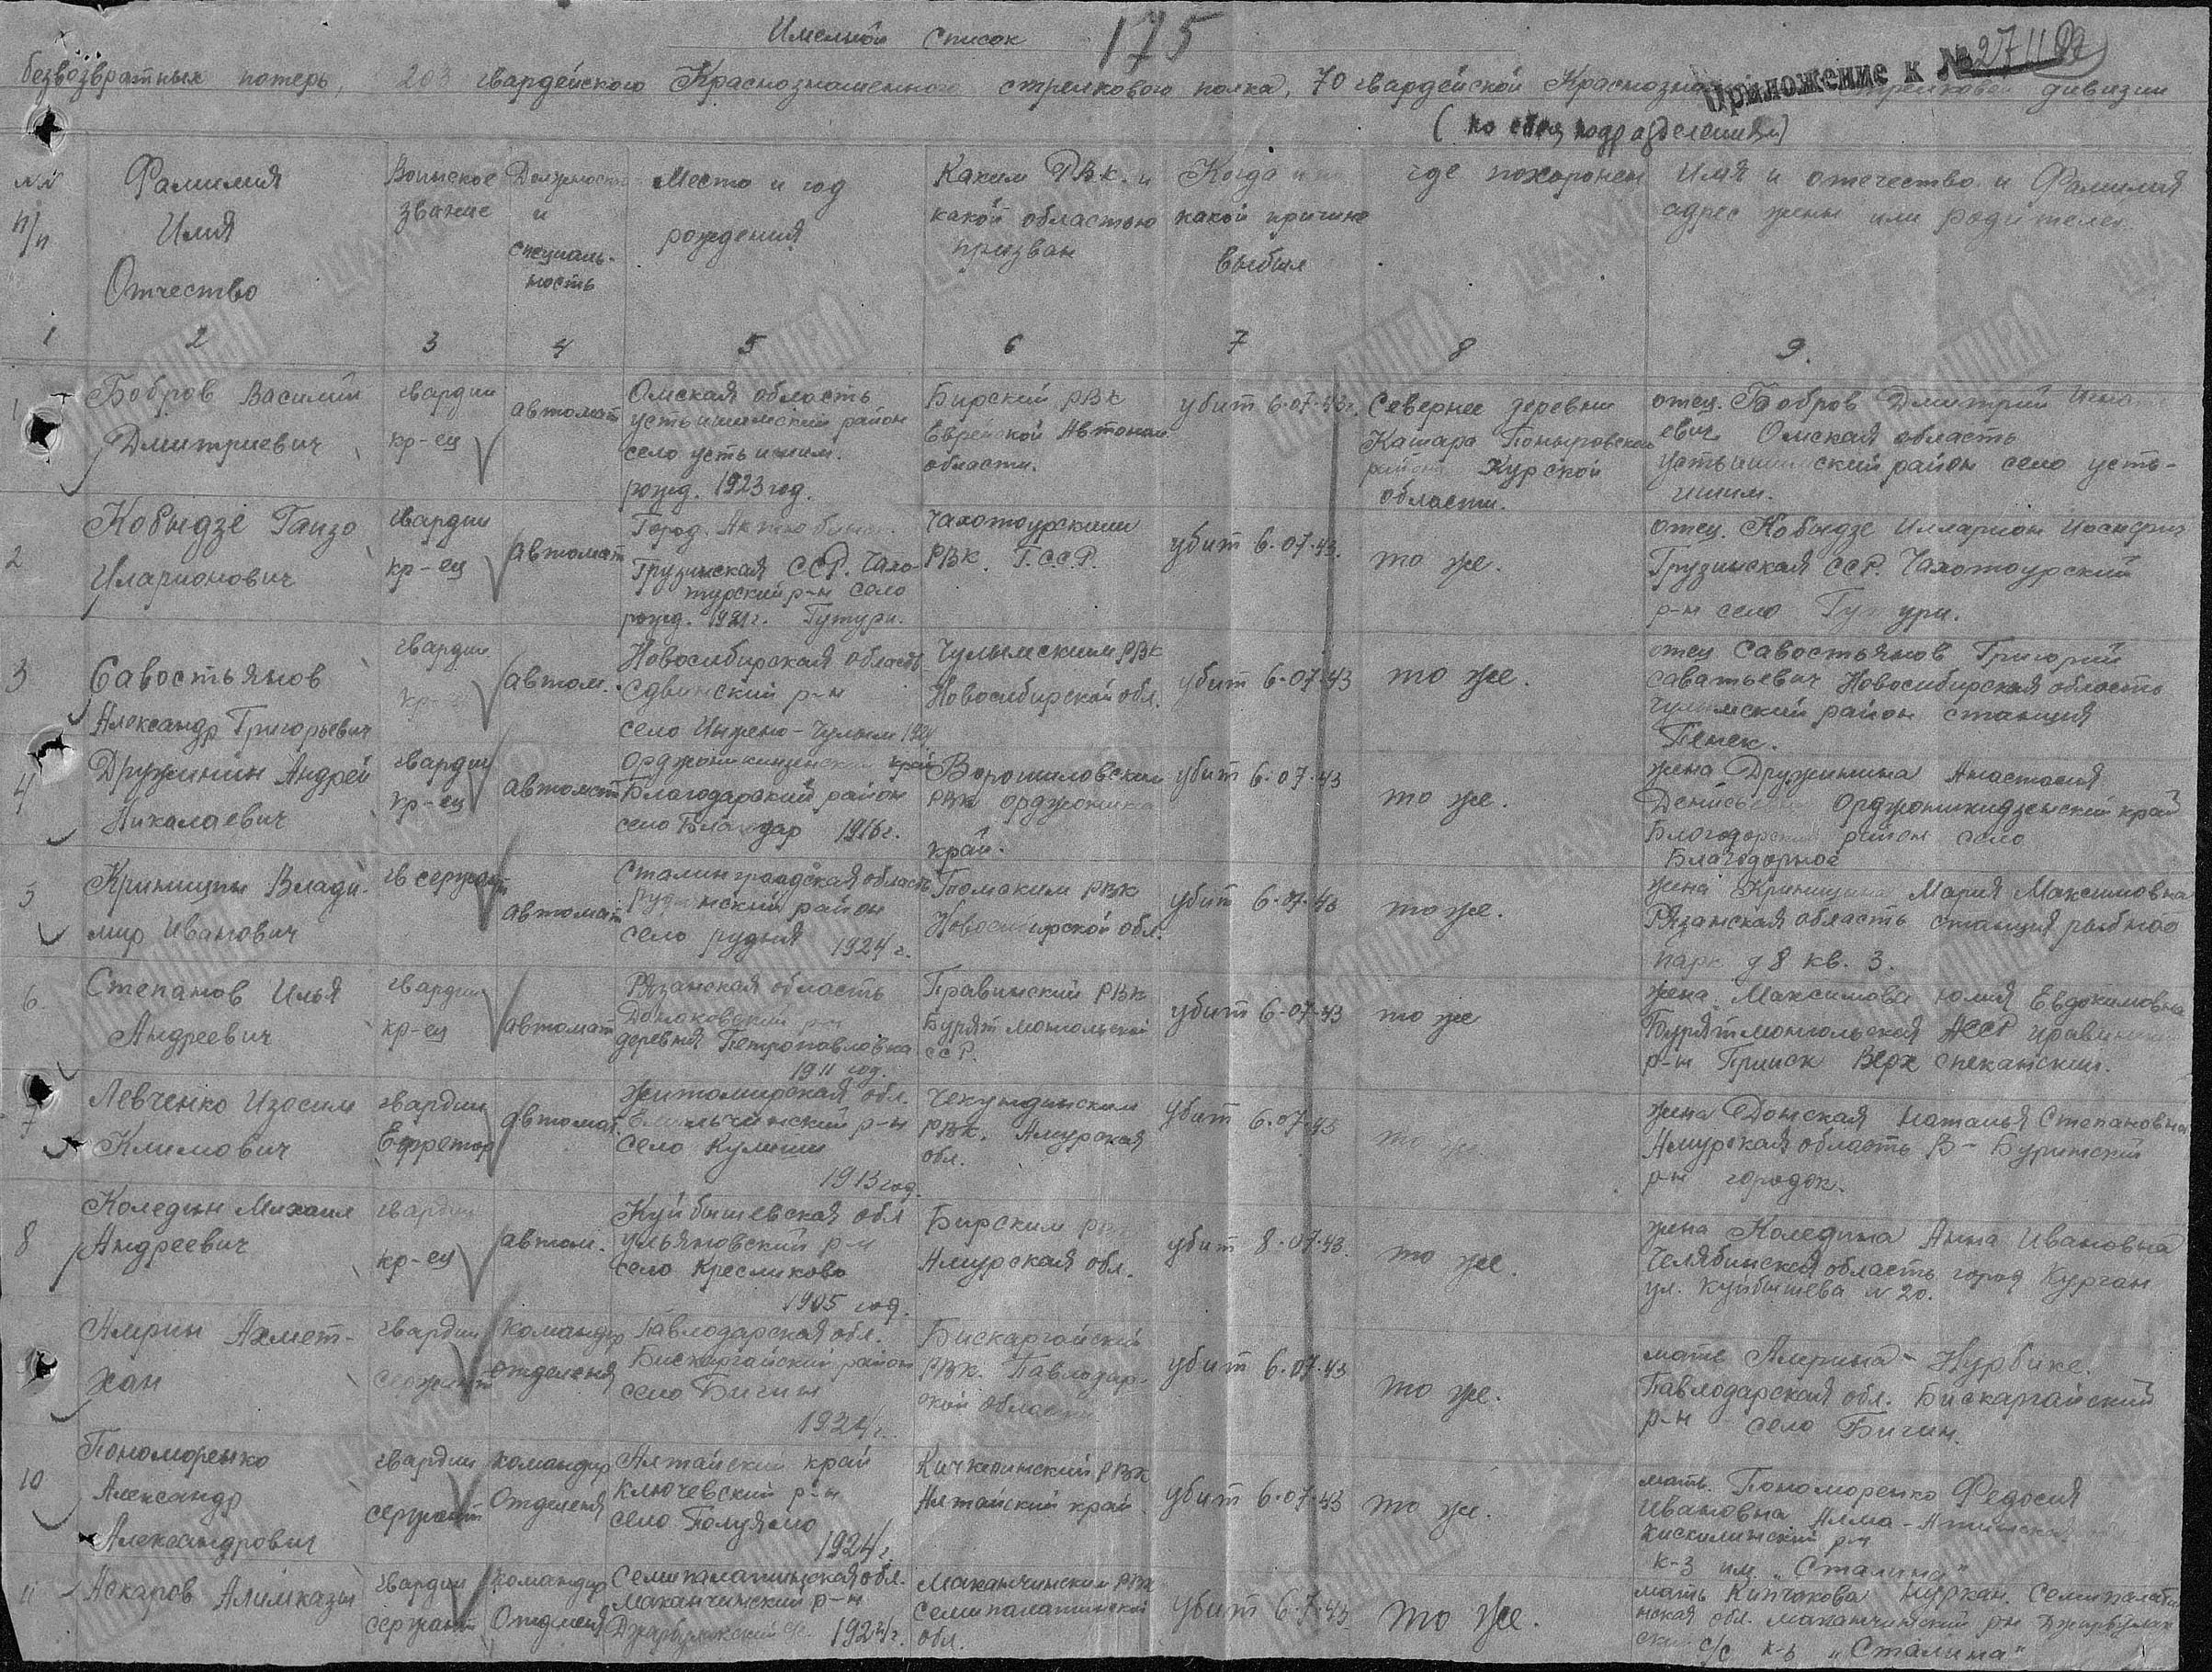 Именной список 175
Приложение к № 27
безвозвратных потерь, 203 гвардейского Краснознаменного стрелкового полка, 70 гвардейской стрелковой дивизии
№№ п/п
Фамилия
Имя
Отчество
Воинское
звание
Должность
и
специаль-
ность
Место и год
рождения
Каким РВК и
какой областью
призван
Когда и по
какой причине
выбыл
где похоронен
Имя и отечество и Фамилия
адрес жены или родителей
1 2 3 4 5 6 7 8 9.
1
Бобров Василий
Дмитриевич
гвардии
кр-ец
автомат
Омская область
устьишимский район
село устьишим.
рожд. 1923 год.
Бирский РВК
Еврейской Автоном
области.
убит 6.07.43г.
Севернее деревни
Кашара Поныровского
района Курской
области.
отец. Бобров Дмитрий
евич Омская область
район село усть-
ишим.
2
Кобыдзе Гаизо
Иларионович
гвардии
кр-ец
автомат
Город.
Грузинская ССР. Чахо-
турский р-н село
рожд. 1921г. Гутури.
Чахотоурским
РВК. Г.С.С.Р.
убит 6.07.43.
то же.
отец. Кобыдзе Илларион
Грузинская ССР. Чахотоурский
р-н село Гутури.
3
Савостьянов
Александр Григорьевич
гвардии
кр-ец
автом.
Новосибирская область
Сдвинский р-н
село
Чулымским РВК
Новосибирской обл.
убит 6.07.43
то же.
отец Савостьянов Григорий
саватьевич Новосибирская область
Чулымский район станция
4
Дружинин Андрей
Николаевич
гвардии
кр-ец
автомат
край
Благодарский район
село 1916г.
Ворошиловским
РВК орджоника
край.
убит 6.07.43
то же.
жена Дружинина Анастасия
Орджоникидзенский край
район село
Благодарное
5
Криницын Влади-
мир Иванович
гв сержант
автомат
Сталинградская область
район
село рудня 1924г.
РВК
Новосибирской обл.
убит 6.07.43
то же.
жена Криницина Мария Максимовна
Рязанская область станция рыбное
парк д 8 кв. 3.
6
Степанов Илья
Андреевич
гвардии
кр-ец
автомат
Рязанская область
р-н
деревня Петропавловка
1911 год.
РВК
Бурят Монгольской
ССР.
убит 6.07.43
то же
жена Максимова Юлия Евдокимовна
Бурятмонгольская АССР
р-н Прииск Верх
7
Левченко Изосим
Климович
гвардии
Ефрейтор
автомат
Житомирская обл.
р-н
село Кулеши
1913 год.
Чекундинским
РВК. Амурская
обл.
убит 6.07.43
то же.
жена Донская Наталья Степановна
Амурская область В-Буринский
р-н городок.
8
Коледин Михаил
Андреевич
гвардии
кр-ец
автом.
Куйбышевская обл
ульяновский р-н
село Кресликово
1905 год.
Бирским
Амурская обл.
убит 8.07.43.
то же.
жена Коледина Анна Ивановна
Челябинская область город Курган
ул. Куйбышева N 20.
Амрин Ахмет-
хан
гвардии
сержант
командир
отделеня
Павлодарская обл.
Бискаргайский район
село Бигин
1924г.
Бискаргайский
РВК. Павлодар-
ской области
убит 6.07.43
то же.
мать Амрина Нурбике.
Павлодарская обл. Бискаргайский
р-н село Бигин.
10
Пономоренко
Александр
Александрович
гвардии
сержант
командир
Отделеня
Алтайский край
Ключевский р-н
село Полуямо
1924г.
РВК
Алтайский край
убит 6.07.43
то же.
мать. Пономоренко Федосия
Ивановна
р-н
к-з им. „Сталина"
11
Аскаров Алимказы
гвардии
сержант
командир
Отделеня
Семипалатинская обл.
Маканчинский р-н
1924г.
Маканчинским РВК
Семипалатинской
обл.
убит 6.7.43
то же.
мать Кипчакова Нуркан. Семипалати
нская обл. Маканчинский рн
с/с к-з „Сталина"